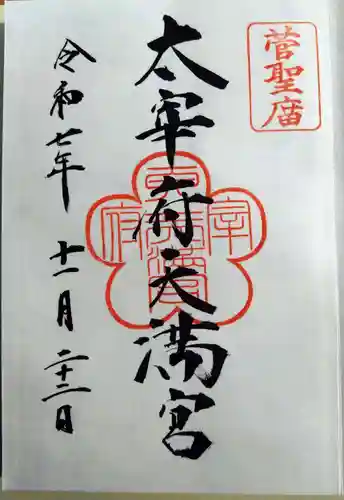 菅聖庿
太宰府天満宮
令和七年十一月二十二日